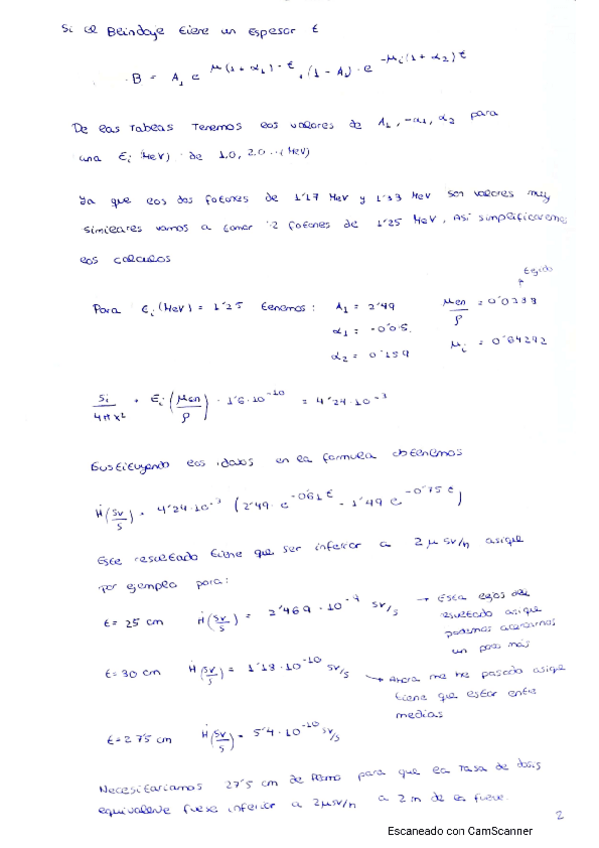 Si el Blindaje tiene un espesor t
B = A₁ e^{-μ(1+α₁)·t} + (1-A₁)·e^{-μᵢ(1+α₂)t}
De las tablas tenemos los valores de A₁, -α₁, α₂ para
una Eᵢ (MeV) de 1.0, 2.0... (MeV)
Ya que los dos fotones de 1'17 MeV y 1'33 MeV son valores muy
similares vamos a tomar 2 fotones de 1'25 MeV, Así simplificaremos
los cálculos
Tejido
Para Eᵢ (MeV) = 1'25 tenemos: A₁ = 2'49 μen/ρ = 0'0
α₁ = -0'0 μᵢ = 0'64292
α₂ = 0'159
Sᵢ/4πx² · Eᵢ (μen/ρ) · 1'6·10⁻¹⁰ = 4'24·10⁻³
Sustituyendo los datos en la formula obtenemos
Ḣ(Sv/s) = 4'24·10⁻³ (2'49·e^{-0'61t} - 1'49 e^{-0'75t})
Este resultado tiene que ser inferior a 2 μSv/h asique
por ejemplo para:
t = 25 cm Ḣ(Sv/s) = 2'469·10⁻⁹ Sv/s → Esta lejos del
resultado asique
podemos acercarnos
un poco más
t = 30 cm Ḣ(Sv/s) = 1'13·10⁻¹⁰ Sv/s → Ahora me he pasado asique
tiene que estar entre
medias
t = 2 75 cm Ḣ(Sv/s) = 5'4·10⁻¹⁰ Sv/s
Necesitaríamos 27'5 cm de Plomo para que la tasa de dosis
equivalente fuese inferior a 2μSv/h a 2 m de la fuente.
2
Escaneado con CamScanner